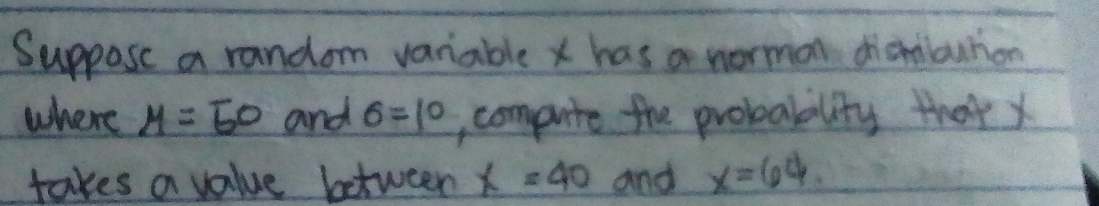 Suppose a random variable x has a normal distribution
where μ = 50 and σ=10, compute the probability that x
takes a value between x = 40 and x=64.